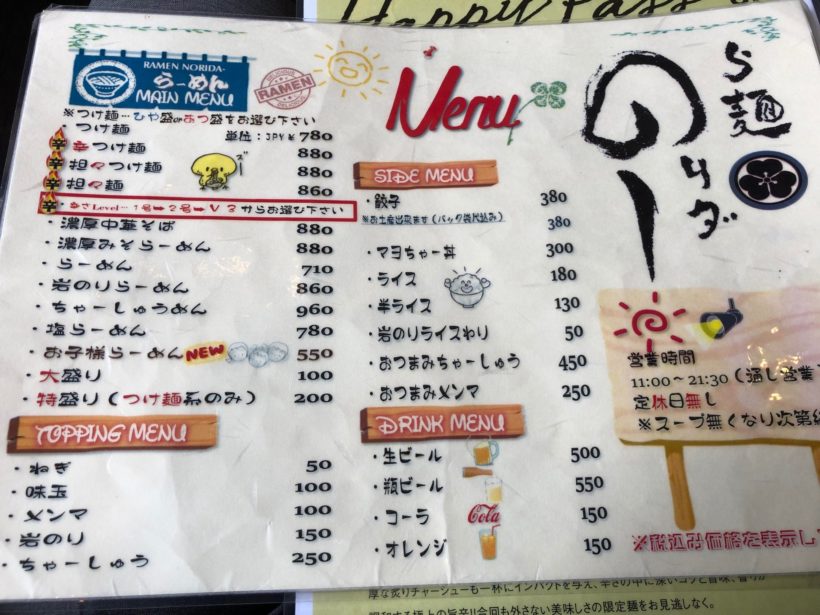 Happy Pass
RAMEN NORIDA-
らーめん
MAIN MENU
RAMEN
Menu
※つけ麺…ひや盛orあつ盛をお選び下さい
単位:JPY
つけ麺 ¥780
辛 辛つけ麺 880
辛 担々つけ麺 880
辛 担々麺 860
辛 ・辛さLevel…1号➡2号➡V3からお選び下さい
・濃厚中華そば 880
・濃厚みそらーめん 880
・らーめん 710
・岩のりらーめん 860
・ちゃーしゅうめん 960
・塩らーめん 780
・お子様らーめん NEW 550
・大盛り 100
・特盛り(つけ麺系のみ) 200
TOPPING MENU
・ねぎ 50
・味玉 100
・メンマ 100
・岩のり 150
・ちゃーしゅう 250
SIDE MENU
・餃子 380
※お土産出来ます(パック袋代込み) 380
・マヨちゃー丼 300
・ライス 180
・半ライス 130
・岩のりライスわり 50
・おつまみちゃーしゅう 450
・おつまみメンマ 250
DRINK MENU
・生ビール 500
・瓶ビール 550
・コーラ Cola 150
・オレンジ 150
ら麺
のりダー
営業時間
11:00~21:30(通し営業
定休日無し
※スープ無くなり次第
※税込み価格を表示し
厚な炙りチャーシューも一杯にインパクトを与え、辛さの中に深いコクと旨味、香りが
極上の旨辛!!今回も外さない美味しさの限定麺をお見逃しなく。